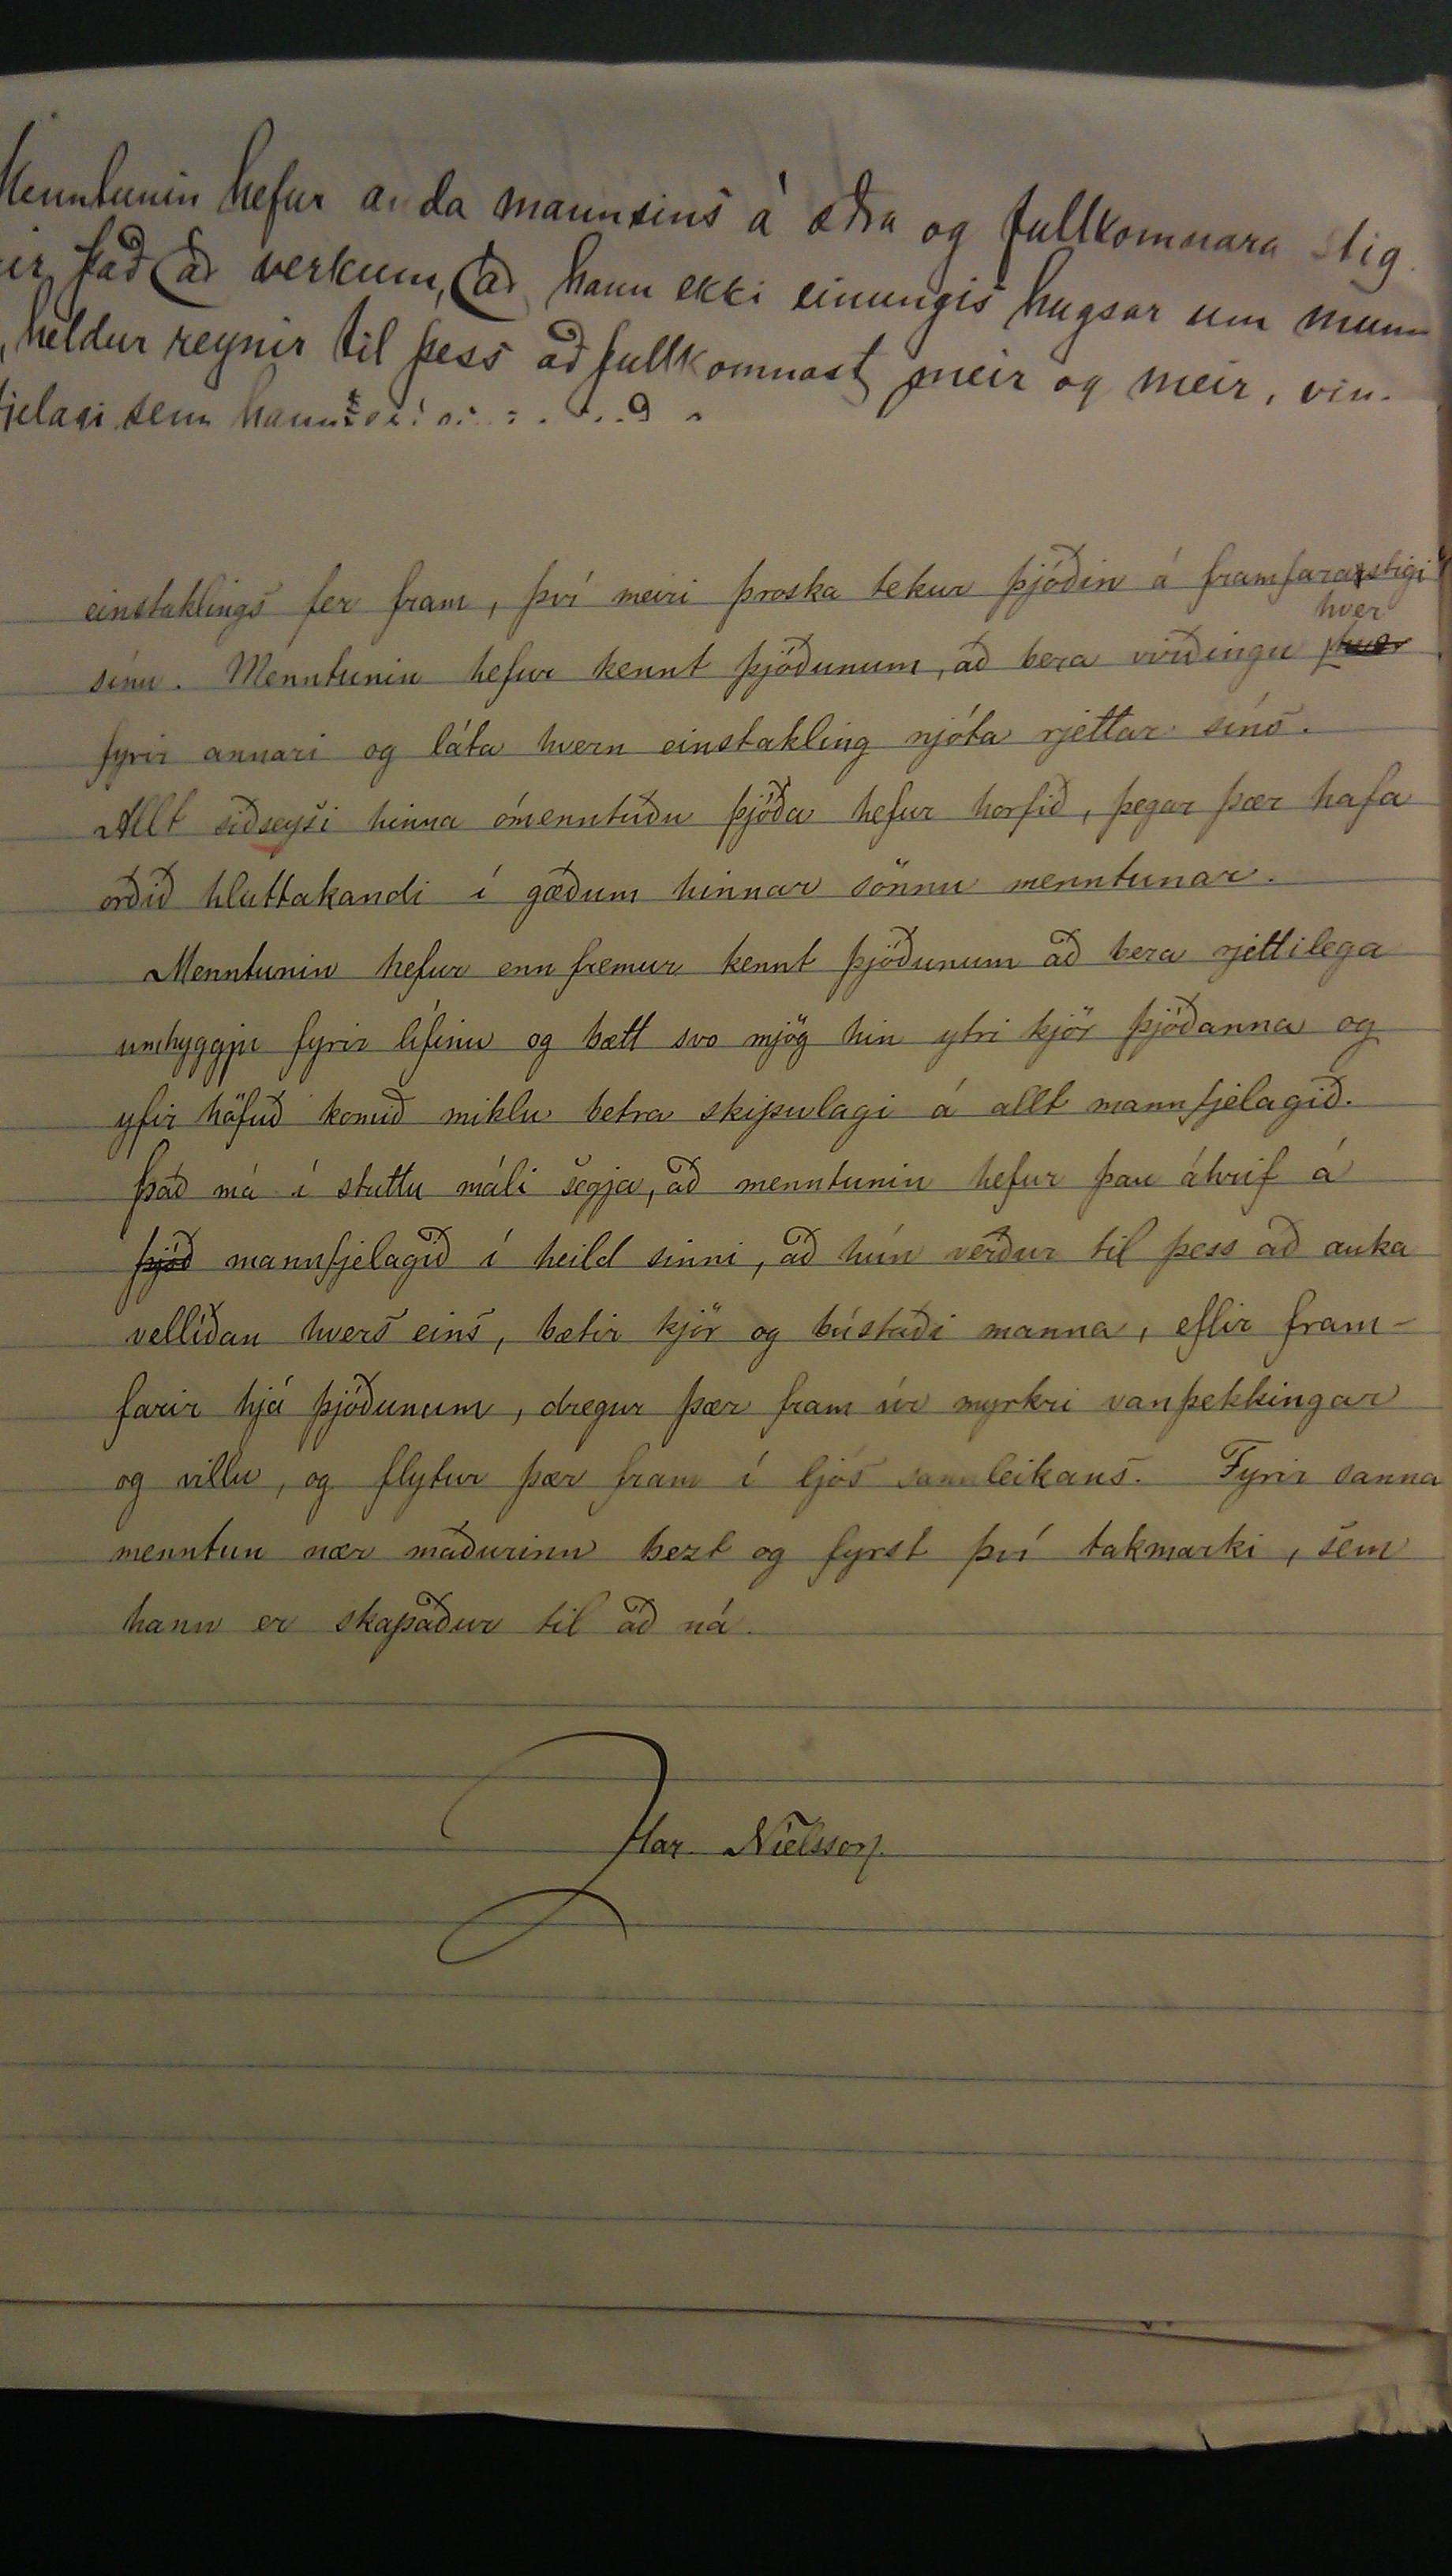 Menntunin hefur anda mannsins á æðra og fullkomnara stig
það að verkum, að hann ekki einungis hugsar um munn
, heldur reynir til þess að fullkomnast meir og meir, vin-
fjelagi sem hann
einstaklings fer fram, því meiri þroska tekur þjóðin á framfarastigi
hver
sínu. Menntunin hefur kennt þjóðunum, að bera virðingu
fyrir annari og láta hvern einstakling njóta rjettar síns.
Allt siðleysi hinna ómenntuðu þjóða hefur horfið, þegar þær hafa
orðið hluttakandi í gæðum hinnar sönnu menntunar.
Menntunin hefur enn fremur kennt þjóðunum að bera rjettilega
umhyggju fyrir lífinu og bætt svo mjög hin ytri kjör þjóðanna og
yfir höfuð komið miklu betra skipulagi á allt mannfjelagið.
Það má í stuttu máli segja, að menntunin hefur þau áhrif á
þjóð mannfjelagið í heild sinni, að hún verður til þess að auka
vellíðan hvers eins, bætir kjör og bústaði manna, eflir fram-
farir hjá þjóðunum, dregur þær fram úr myrkri vanþekkingar
og villu, og flytur þær fram í ljós sannleikans. Fyrir sanna
menntun nær maðurinn bezt og fyrst því takmarki, sem
hann er skapaður til að ná.
Har. Níelsson.